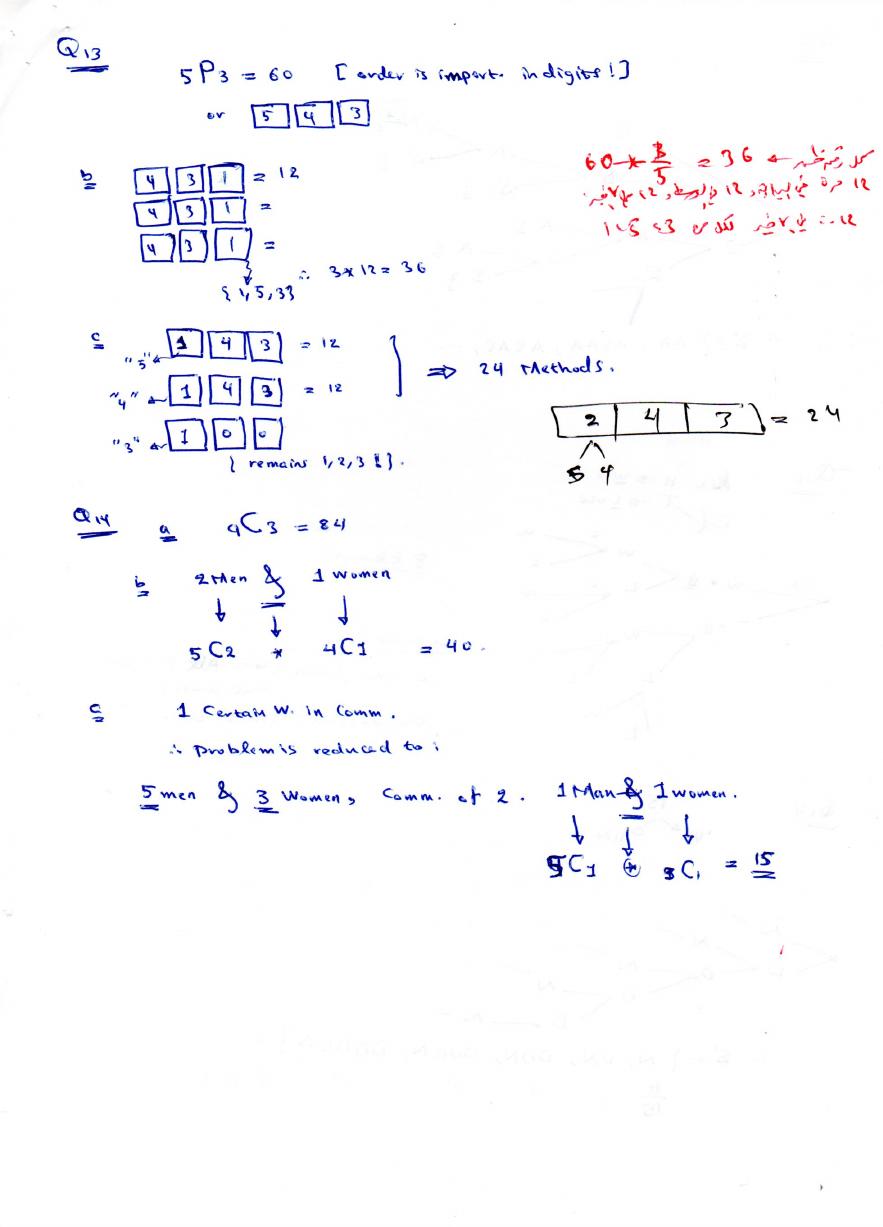 Q13
5P3 = 60 [ order is import. in digits ! ]
or 5 4 3
b 4 3 1 = 12
4 3 1 =
4 3 1 =
{ 1, 5, 3 }
∴ 3 * 12 = 36
60 * 3/5 = 36 ←
c "5" ← 1 4 3 = 12
"4" ← 1 4 3 = 12
⇒ 24 Methods.
"3" ← 1 0 0
{ remains 1, 2, 3 !! }.
2 4 3 = 24
5 4
Q14 a 9C3 = 84
b 2 Men & 1 Women
5C2 * 4C1 = 40.
c 1 Certain W. in Comm.
∴ problem is reduced to :
5 men & 3 Women, Comm. of 2. 1 Man & 1 women.
5C1 * 3C1 = 15